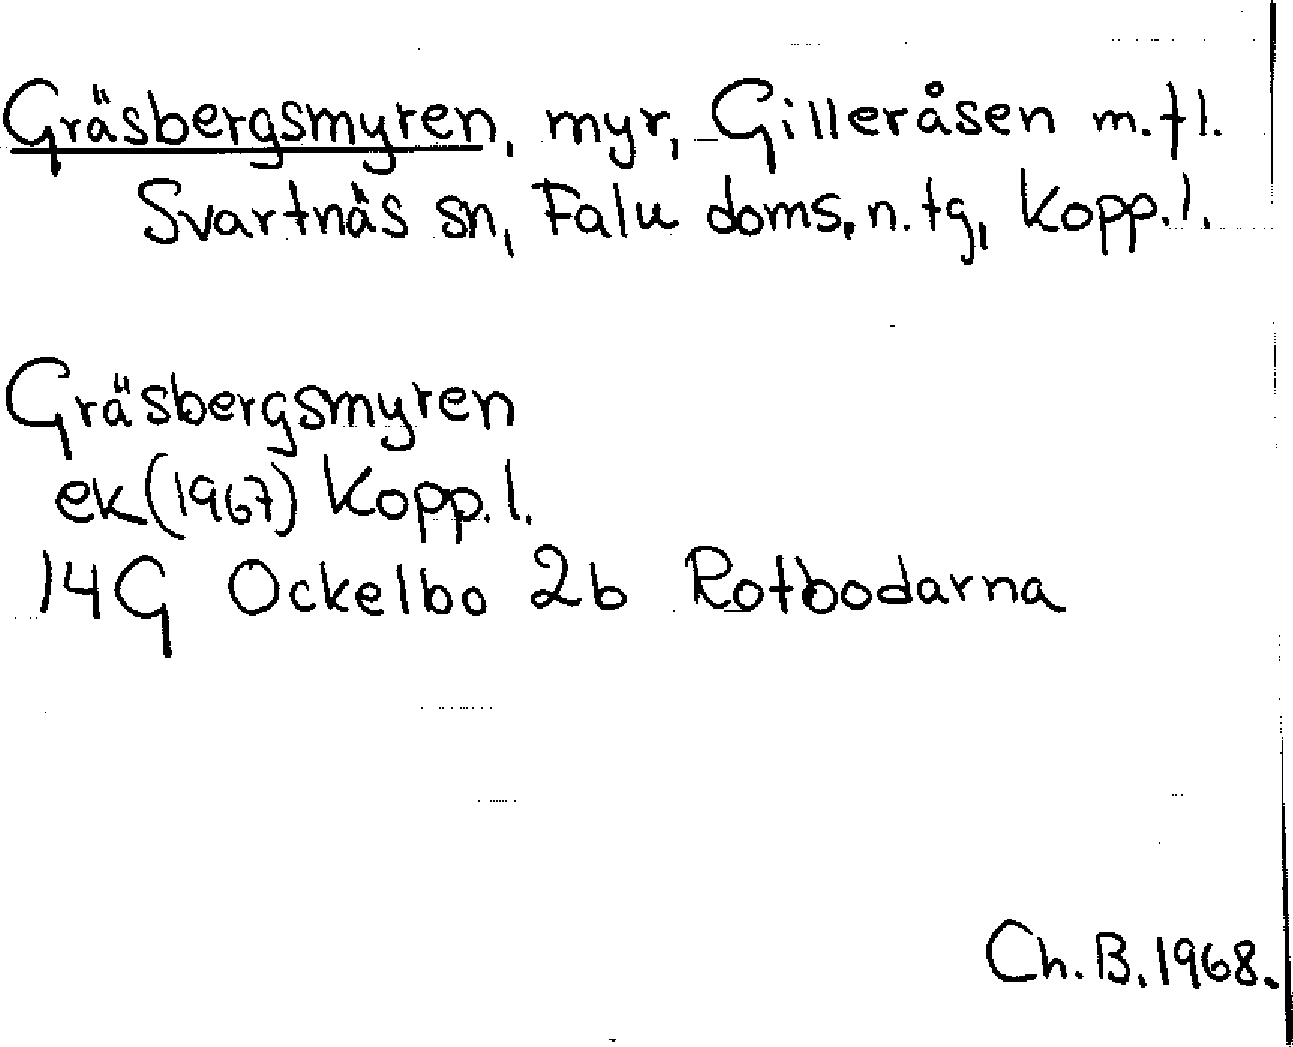 Gräsbergsmyren, myr, Gilleråsen m.fl.
Svartnäs sn, Falu doms. n. tg, Kopp. l.
Gräsbergsmyren
ek (1967) Kopp. l.
14G Ockelbo 2b Rotbodarna
Ch. B. 1968.